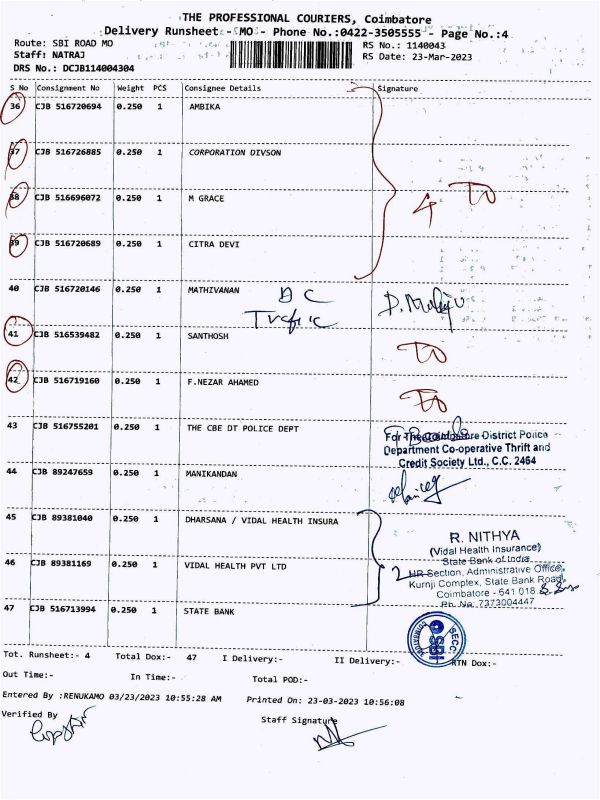 THE PROFESSIONAL COURIERS, Coimbatore
Delivery Runsheet - MO - Phone No.:0422-3505555 - Page No.:4
Route: SBI ROAD MO RS No.: 1140043
Staff: NATRAJ RS Date: 23-Mar-2023
DRS No.: DCJB114004304
S No Consignment No Weight PCS Consignee Details Signature
36 CJB 516720694 0.250 1 AMBIKA
37 CJB 516726885 0.250 1 CORPORATION DIVSON
38 CJB 516696072 0.250 1 M GRACE
4 TO
39 CJB 516720689 0.250 1 CITRA DEVI
40 CJB 516720146 0.250 1 MATHIVANAN
41 CJB 516539482 0.250 1 SANTHOSH TO
42 CJB 516719160 0.250 1 F.NEZAR AHAMED TO
43 CJB 516755201 0.250 1 THE CBE DT POLICE DEPT
For The Coimbatore District Police
Department Co-operative Thrift and
Credit Society Ltd., C.C. 2464
44 CJB 89247659 0.250 1 MANIKANDAN
45 CJB 89381040 0.250 1 DHARSANA / VIDAL HEALTH INSURA
R. NITHYA
(Vidal Health Insurance)
State Bank of India
46 CJB 89381169 0.250 1 VIDAL HEALTH PVT LTD 2
HR Section, Administrative Office,
Kurnji Complex, State Bank Road,
Coimbatore - 641 018
Ph. No. 7373004447
47 CJB 516713994 0.250 1 STATE BANK
SECC SBI
Tot. Runsheet:- 4 Total Dox:- 47 I Delivery:- II Delivery:- RTN Dox:-
Out Time:- In Time:- Total POD:-
Entered By :RENUKAMO 03/23/2023 10:55:28 AM Printed On: 23-03-2023 10:56:08
Verified By Staff Signature